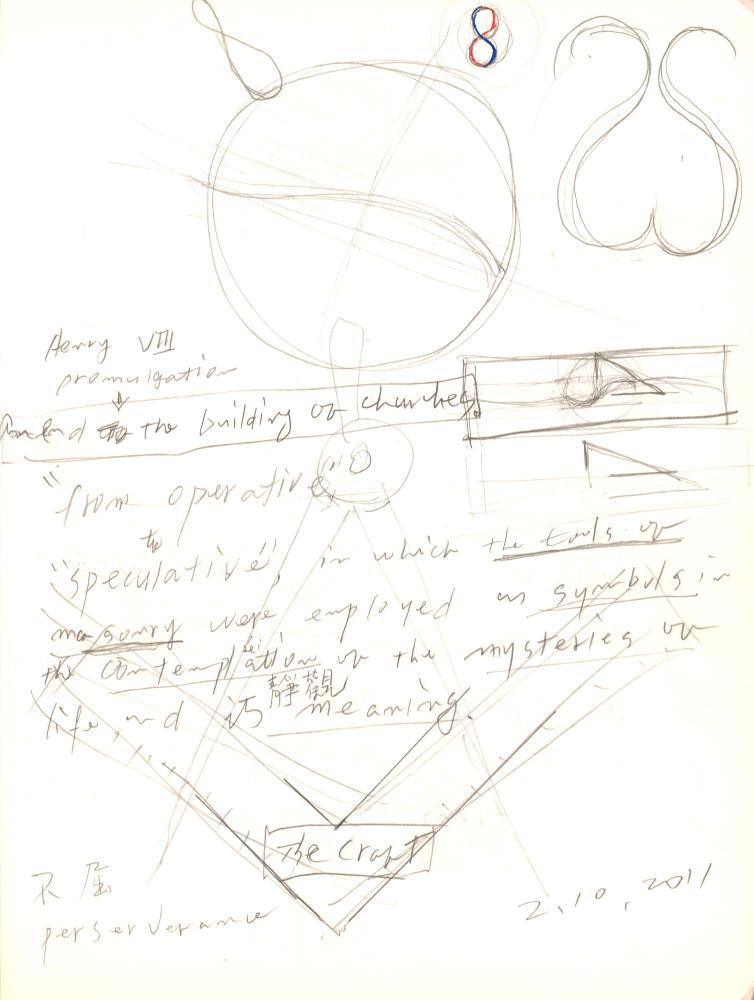 8
Henry VIII
promulgation
the building of churches.
"from operative" 8
to
"speculative", in which the tools of
masonry were employed as symbols in
the contemplation of the mysteries of
靜觀
life, and its meaning.
The Craft
不屈
perserverance
2.10.2011